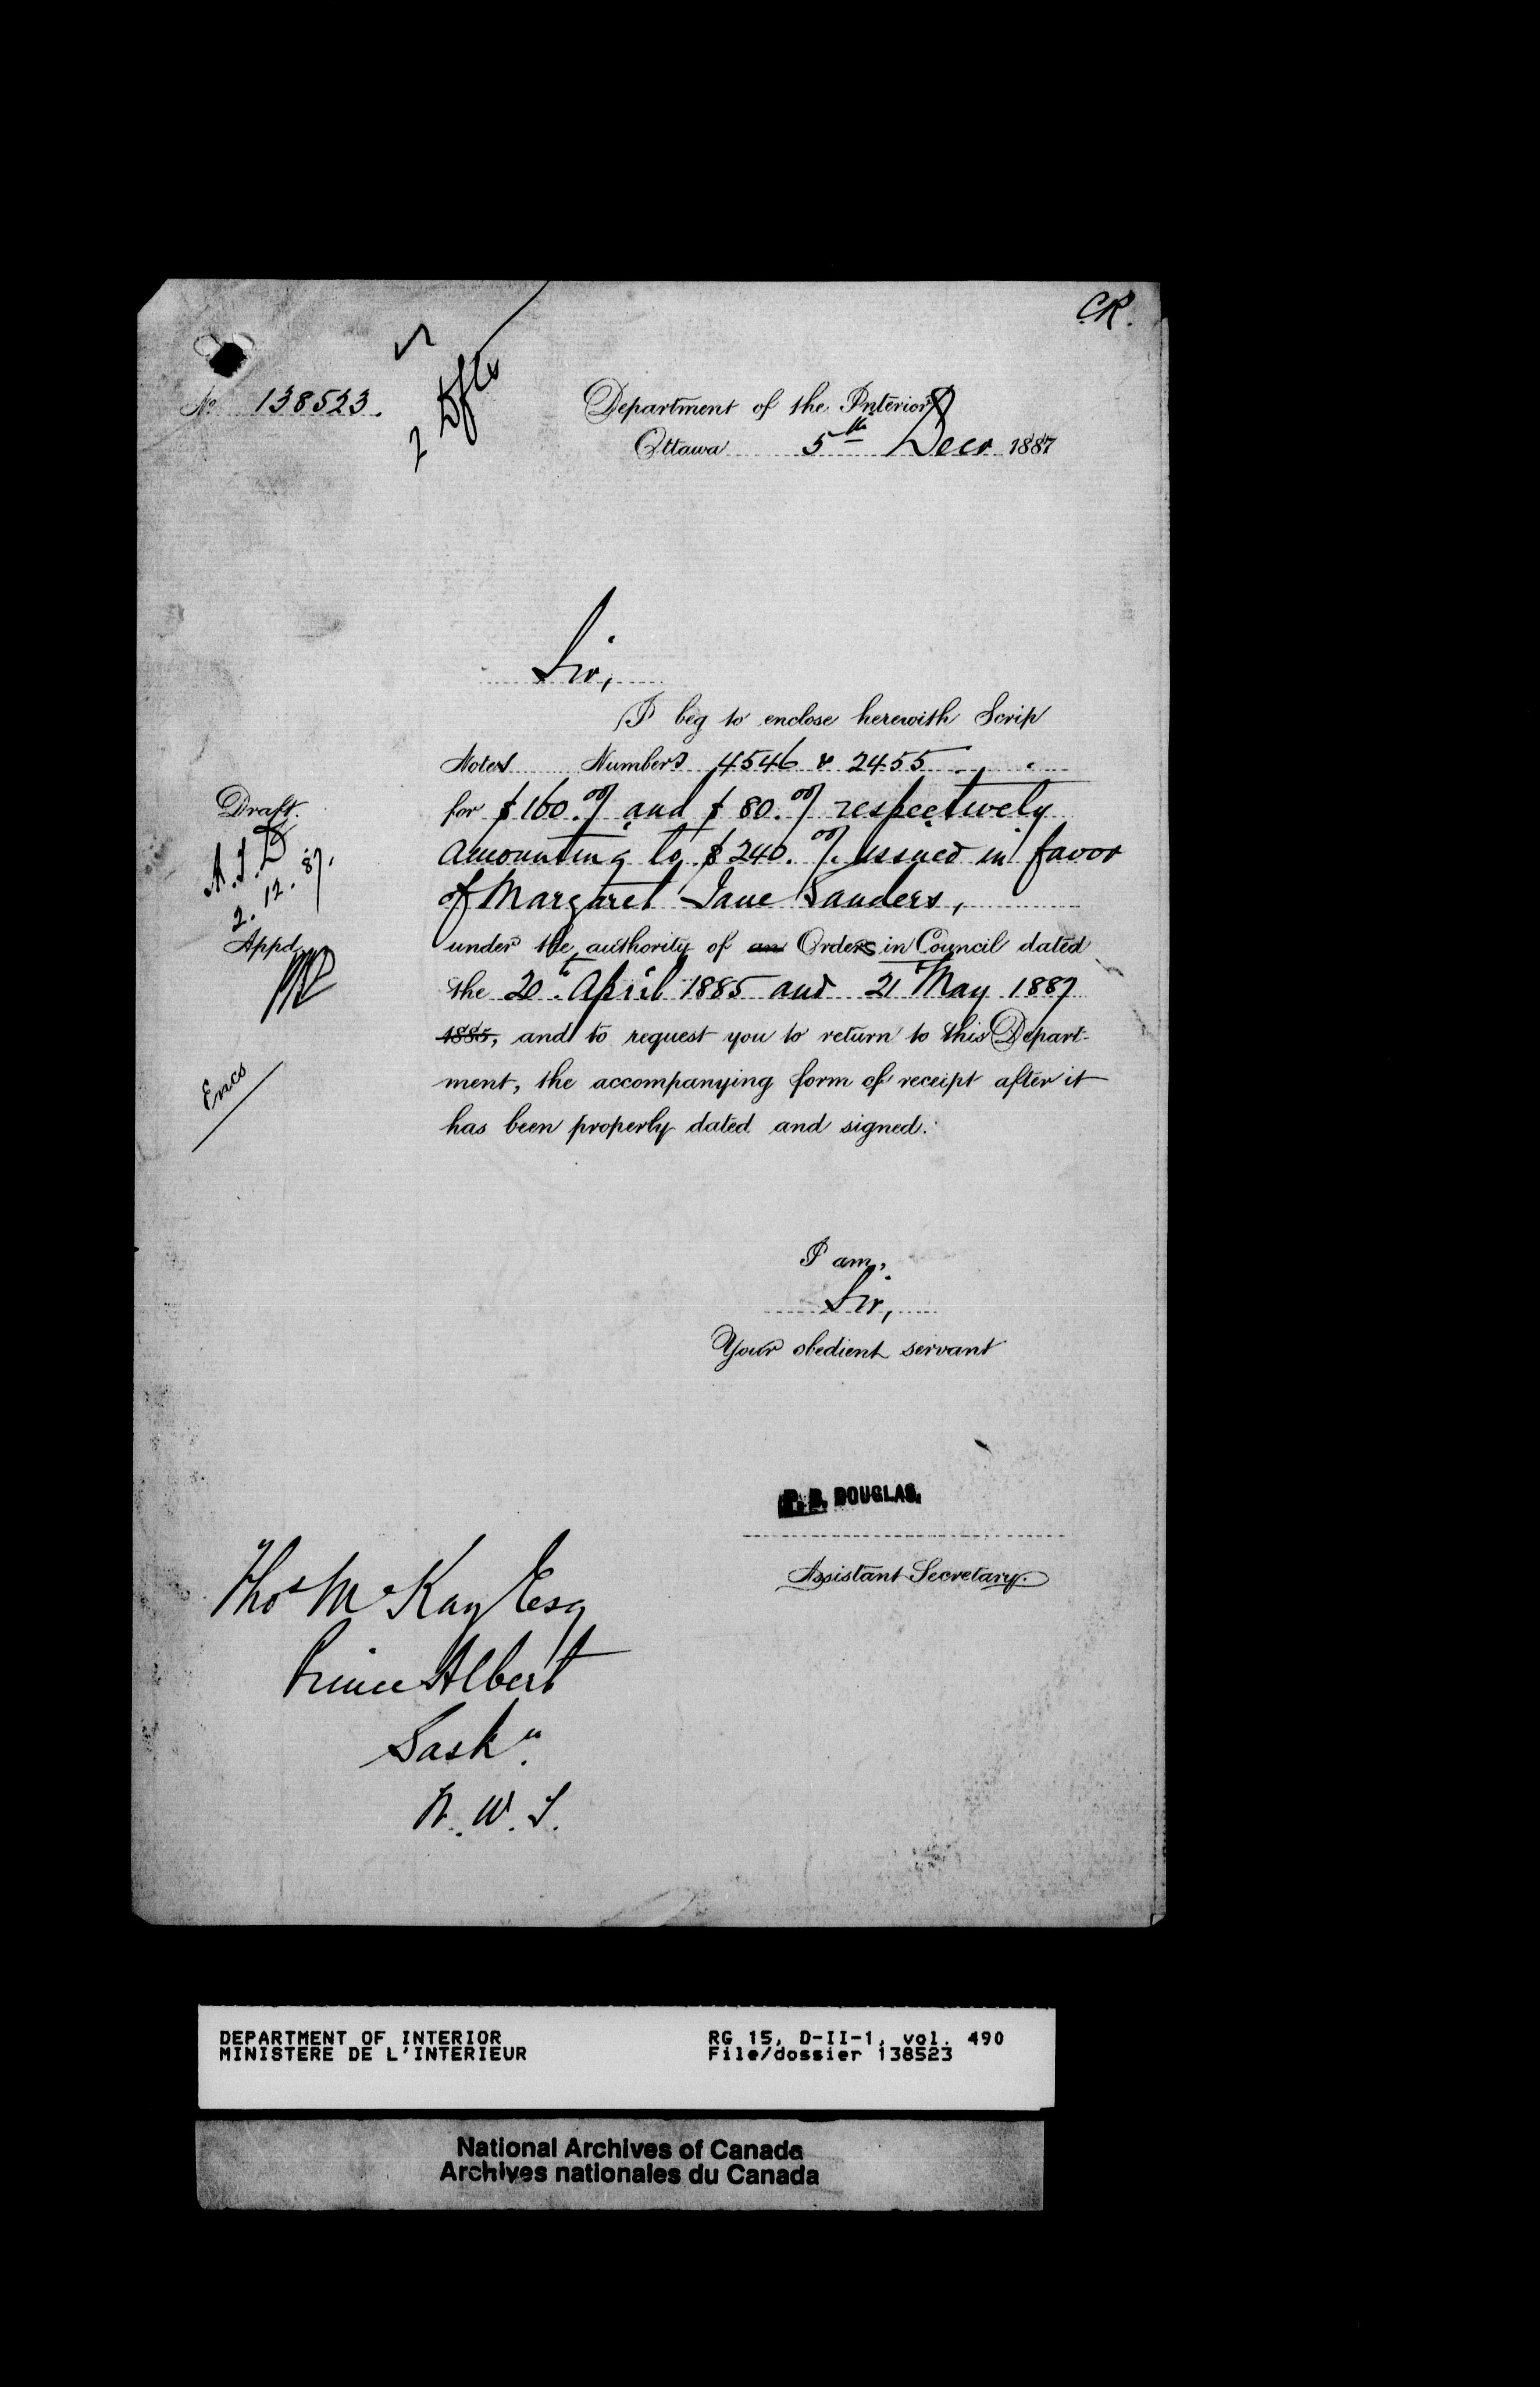 C.R.
No 138523.
Department of the Interior
Ottawa 5th Decr 1887
Sir,
I beg to enclose herewith Scrip
Notes Numbers 4546 & 2455
for $160.00/ and $80.00/ respectively
amounting to $240.00/. issued in favor
of Margaret Jane Sanders,
under the authority of an Orders in Council dated
the 20th April 1885 and 21st May 1887
1885, and to request you to return to this Depart-
ment, the accompanying form of receipt after it
has been properly dated and signed.
Draft.
2.12.87.
Appd
Encs
I am,
Sir,
Your obedient servant
P. B. DOUGLAS.
Assistant Secretary.
Thos McKay Esq
Prince Albert
Saskn.
N.W.T.
DEPARTMENT OF INTERIOR RG 15, D-II-1, vol. 490
MINISTERE DE L'INTERIEUR File/dossier 138523
National Archives of Canada
Archives nationales du Canada